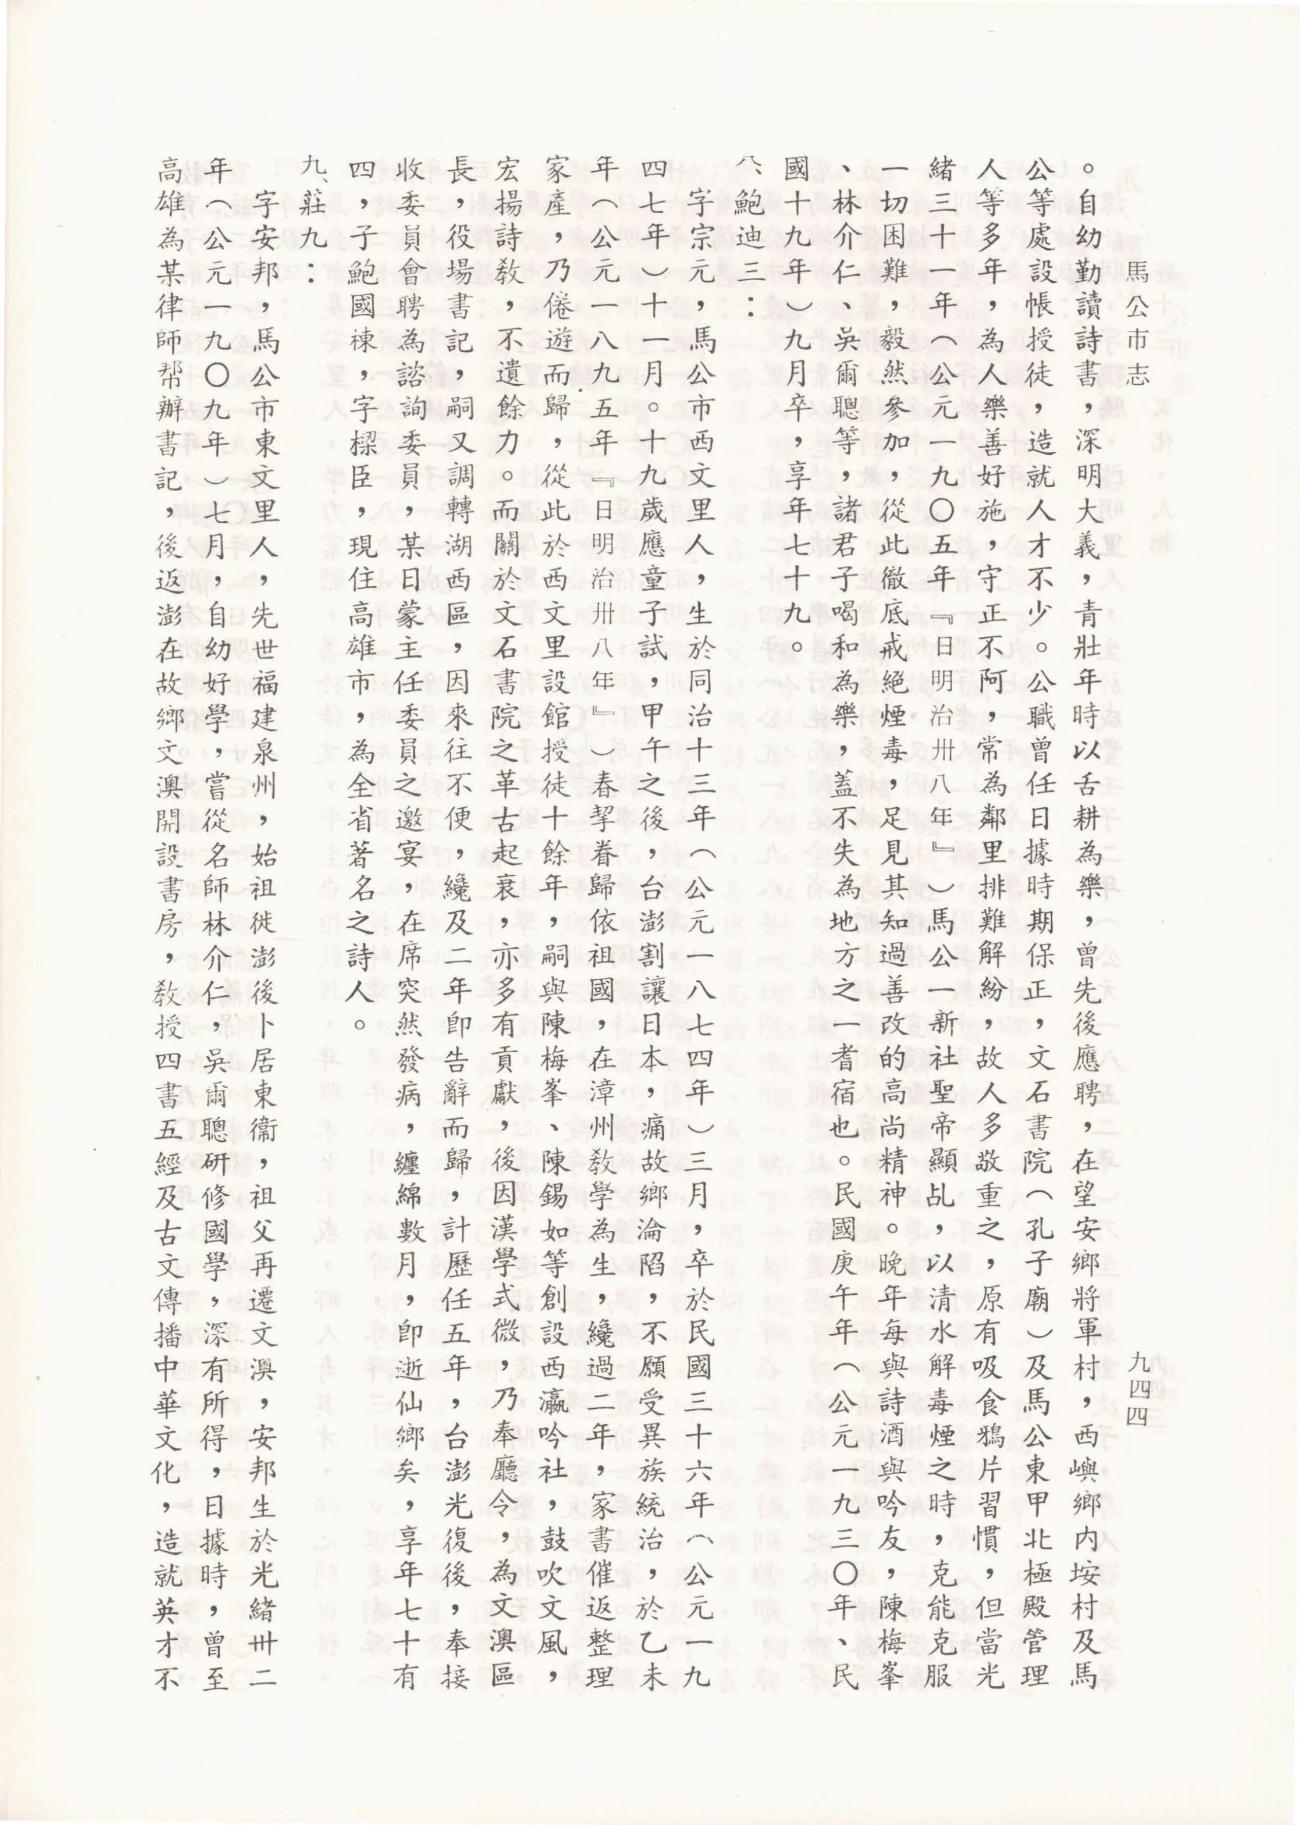 馬公市志
九四四
。自幼勤讀詩書，深明大義，青壯年時以舌耕為樂，曾先後應聘，在望安鄉將軍村，西嶼鄉内垵村及馬
公等處設帳授徒，造就人才不少。公職曾任日據時期保正，文石書院（孔子廟）及馬公東甲北極殿管理
人等多年，為人樂善好施，守正不阿，常為鄰里排難解紛，故人多敬重之，原有吸食鴉片習慣，但當光
緒三十一年（公元一九〇五年『日明治卅八年』）馬公一新社聖帝顯乩，以清水解毒煙之時，克能克服
一切困難，毅然參加，從此徹底戒絕煙毒，足見其知過善改的高尚精神。晚年每與詩酒與吟友，陳梅峯
、林介仁、吳爾聰等，諸君子喝和為樂，蓋不失為地方之一耆宿也。民國庚午年（公元一九三〇年、民
國十九年）九月卒，享年七十九。
八、鮑迪三：
字宗元，馬公市西文里人，生於同治十三年（公元一八七四年）三月，卒於民國三十六年（公元一九
四七年）十一月。十九歲應童子試，甲午之後，台澎割讓日本，痛故鄉淪陷，不願受異族統治，於乙未
年（公元一八九五年『日明治卅八年』）春挈眷歸依祖國，在漳州教學為生，纔過二年，家書催返整理
家產，乃倦遊而歸，從此於西文里設館授徒十餘年，嗣與陳梅峯、陳錫如等創設西瀛吟社，鼓吹文風，
宏揚詩教，不遺餘力。而關於文石書院之革古起衰，亦多有貢獻，後因漢學式微，乃奉廳令，為文澳區
長，役場書記，嗣又調轉湖西區，因來往不便，纔及二年卽告辭而歸，計歷任五年，台澎光復後，奉接
收委員會聘為諮詢委員，某日蒙主任委員之邀宴，在席突然發病，纏綿數月，卽逝仙鄉矣，享年七十有
四，子鮑國棟，字樑臣，現住高雄市，為全省著名之詩人。
九、莊九：
字安邦，馬公市東文里人，先世福建泉州，始祖徙澎後卜居東衞，祖父再遷文澳，安邦生於光緒卅二
年（公元一九〇九年）七月，自幼好學，嘗從名師林介仁，吳爾聰研修國學，深有所得，日據時，曾至
高雄為某律師帮辦書記，後返澎在故鄉文澳開設書房，教授四書五經及古文傳播中華文化，造就英才不